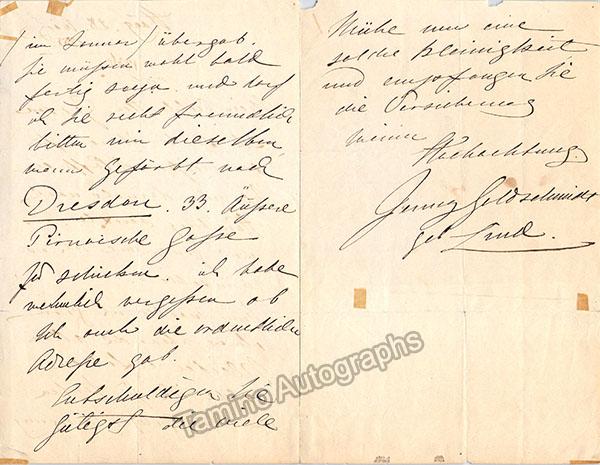 (im Sommer) übergab.
Sie müssen wohl bald
fertig seyn und darf
ich Sie recht freundlich
bitten mir dieselben
wenn gefärbt nach
Dresden. 33. Äussere
Pirnaische Gasse
zu schicken. ich habe
vergessen ob
ich auch die ordentliche
Adresse gab.
Entschuldigen Sie
gütigst die viele
Mühe um eine
solche Kleinigkeit
und empfangen Sie
die Versicherung
meiner
Hochachtung.
Jenny Goldschmidt
geb Lind.
Tamino Autographs